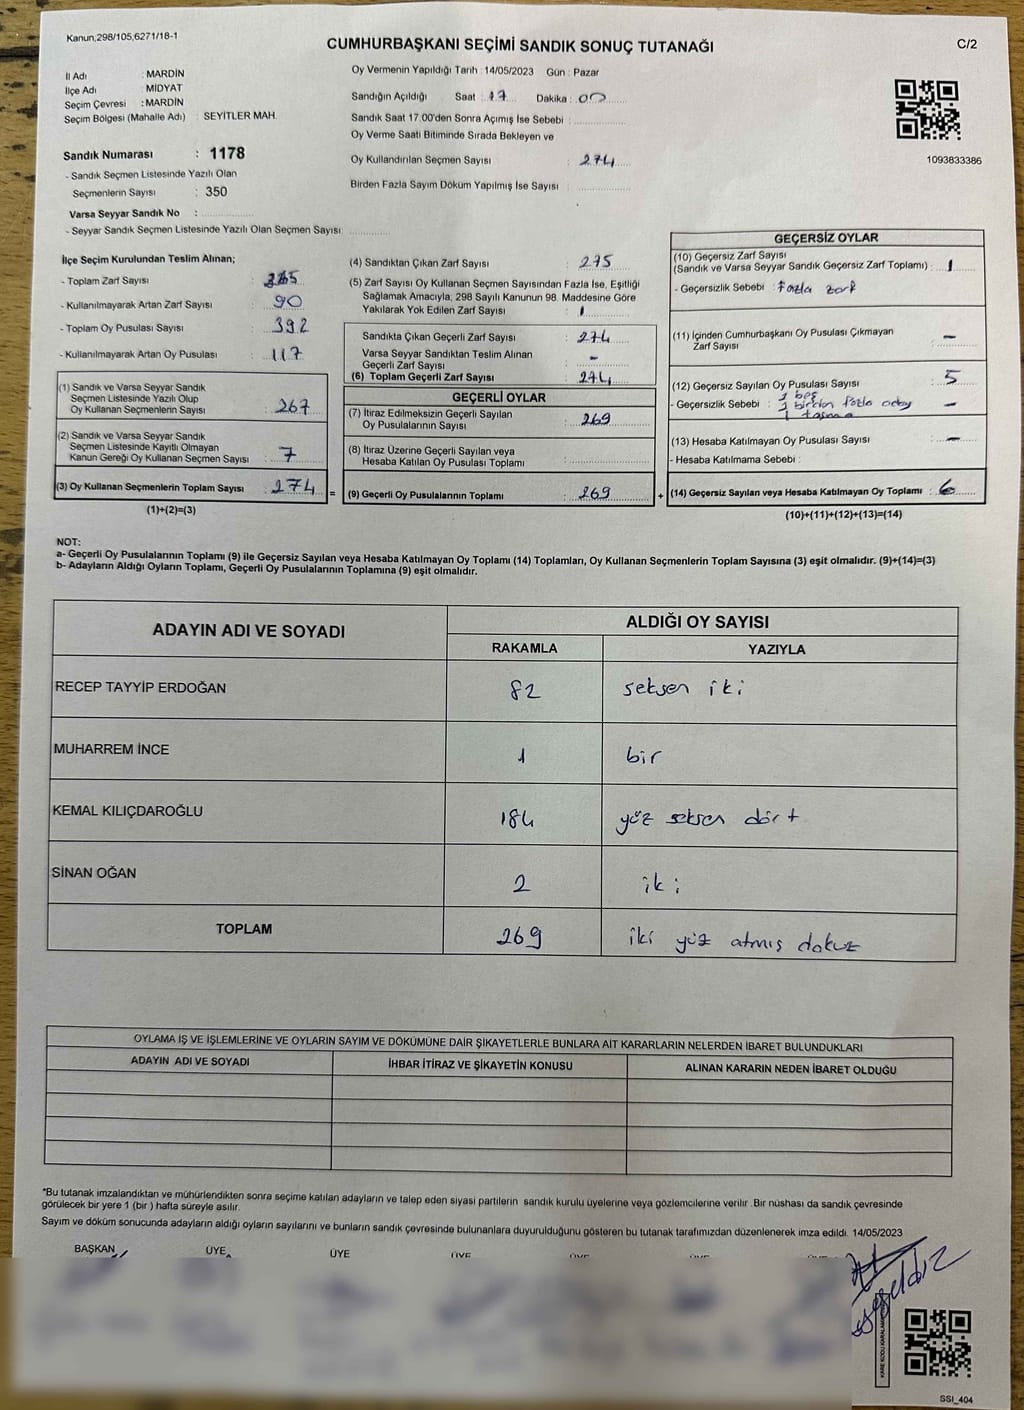 Kanun,298/105,6271/18-1
CUMHURBAŞKANI SEÇİMİ SANDIK SONUÇ TUTANAĞI
C/2
İl Adı : MARDİN
İlçe Adı : MİDYAT
Seçim Çevresi : MARDİN
Seçim Bölgesi (Mahalle Adı) : SEYİTLER MAH.
Sandık Numarası : 1178
- Sandık Seçmen Listesinde Yazılı Olan
Seçmenlerin Sayısı : 350
Varsa Seyyar Sandık No :
- Seyyar Sandık Seçmen Listesinde Yazılı Olan Seçmen Sayısı:
Oy Vermenin Yapıldığı Tarih : 14/05/2023 Gün : Pazar
Sandığın Açıldığı Saat : 17 Dakika : 00
Sandık Saat 17.00'den Sonra Açımış İse Sebebi :
Oy Verme Saati Bitiminde Sırada Bekleyen ve
Oy Kullandırılan Seçmen Sayısı : 274
Birden Fazla Sayım Döküm Yapılmış İse Sayısı :
1093833386
İlçe Seçim Kurulundan Teslim Alınan;
- Toplam Zarf Sayısı :
- Kullanılmayarak Artan Zarf Sayısı : 90
- Toplam Oy Pusulası Sayısı : 392
- Kullanılmayarak Artan Oy Pusulası : 117
(1) Sandık ve Varsa Seyyar Sandık
Seçmen Listesinde Yazılı Olup
Oy Kullanan Seçmenlerin Sayısı : 267
(2) Sandık ve Varsa Seyyar Sandık
Seçmen Listesinde Kayıtlı Olmayan
Kanun Gereği Oy Kullanan Seçmen Sayısı : 7
(3) Oy Kullanan Seçmenlerin Toplam Sayısı : 274 =
(1)+(2)=(3)
(4) Sandıktan Çıkan Zarf Sayısı : 275
(5) Zarf Sayısı Oy Kullanan Seçmen Sayısından Fazla İse, Eşitliği
Sağlamak Amacıyla; 298 Sayılı Kanunun 98. Maddesine Göre
Yakılarak Yok Edilen Zarf Sayısı : 1
Sandıkta Çıkan Geçerli Zarf Sayısı : 274
Varsa Seyyar Sandıktan Teslim Alınan
Geçerli Zarf Sayısı : -
(6) Toplam Geçerli Zarf Sayısı : 274
GEÇERLİ OYLAR
(7) İtiraz Edilmeksizin Geçerli Sayılan
Oy Pusulalarının Sayısı : 269
(8) İtiraz Üzerine Geçerli Sayılan veya
Hesaba Katılan Oy Pusulası Toplamı :
(9) Geçerli Oy Pusulalarının Toplamı : 269 +
GEÇERSİZ OYLAR
(10) Geçersiz Zarf Sayısı
(Sandık ve Varsa Seyyar Sandık Geçersiz Zarf Toplamı) : 1
- Geçersizlik Sebebi : Fazla zarf
(11) İçinden Cumhurbaşkanı Oy Pusulası Çıkmayan
Zarf Sayısı : -
(12) Geçersiz Sayılan Oy Pusulası Sayısı : 5
- Geçersizlik Sebebi : boş
birden fazla aday -
1 taşma
(13) Hesaba Katılmayan Oy Pusulası Sayısı : -
- Hesaba Katılmama Sebebi :
(14) Geçersiz Sayılan veya Hesaba Katılmayan Oy Toplamı : 6
(10)+(11)+(12)+(13)=(14)
NOT:
a- Geçerli Oy Pusulalarının Toplamı (9) ile Geçersiz Sayılan veya Hesaba Katılmayan Oy Toplamı (14) Toplamları, Oy Kullanan Seçmenlerin Toplam Sayısına (3) eşit olmalıdır. (9)+(14)=(3)
b- Adayların Aldığı Oyların Toplamı, Geçerli Oy Pusulalarının Toplamına (9) eşit olmalıdır.
ADAYIN ADI VE SOYADI
ALDIĞI OY SAYISI
RAKAMLA YAZIYLA
RECEP TAYYİP ERDOĞAN 82 seksen iki
MUHARREM İNCE 1 bir
KEMAL KILIÇDAROĞLU 184 yüz seksen dört
SİNAN OĞAN 2 iki
TOPLAM 269 iki yüz atmış dokuz
OYLAMA İŞ VE İŞLEMLERİNE VE OYLARIN SAYIM VE DÖKÜMÜNE DAİR ŞİKAYETLERLE BUNLARA AİT KARARLARIN NELERDEN İBARET BULUNDUKLARI
ADAYIN ADI VE SOYADI İHBAR İTİRAZ VE ŞİKAYETİN KONUSU ALINAN KARARIN NEDEN İBARET OLDUĞU
*Bu tutanak imzalandıktan ve mühürlendikten sonra seçime katılan adayların ve talep eden siyasi partilerin sandık kurulu üyelerine veya gözlemcilerine verilir .Bir nüshası da sandık çevresinde
görülecek bir yere 1 (bir ) hafta süreyle asılır.
Sayım ve döküm sonucunda adayların aldığı oyların sayılarını ve bunların sandık çevresinde bulunanlara duyurulduğunu gösteren bu tutanak tarafımızdan düzenlenerek imza edildi. 14/05/2023
BAŞKAN ÜYE ÜYE ÜYE ÜYE ÜYE ÜYE
SSI_404